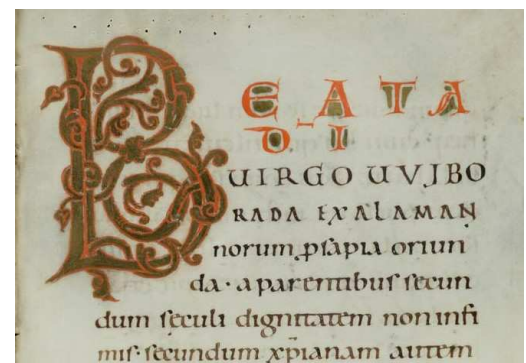 BEATA
D-I
UIRGO UVIBO
RADA EXALAMAN
norum ꝓsapia oriun
da · a parentibus secun
dum seculi dignitatem non infi
mis · secundum xp̄ianam autem